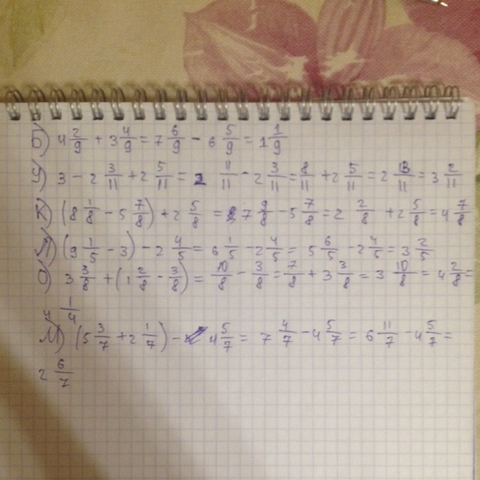 б) 4 2/9 + 3 4/9 = 7 6/9 - 6 5/9 = 1 1/9
у) 3 - 2 3/11 + 2 5/11 = 2 11/11 - 2 3/11 = 8/11 + 2 5/11 = 2 13/11 = 3 2/11
(8 1/8 - 5 7/8) + 2 5/8 = 7 9/8 - 5 7/8 = 2 2/8 + 2 5/8 = 4 7/8
(9 1/5 - 3) - 2 4/5 = 6 1/5 - 2 4/5 = 5 6/5 - 2 4/5 = 3 2/5
о) 3 3/8 + (1 2/8 - 3/8) = 10/8 - 3/8 = 7/8 + 3 3/8 = 3 10/8 = 4 2/8 =
4 1/4
М) (5 3/7 + 2 1/7) - 4 5/7 = 7 4/7 - 4 5/7 = 6 11/7 - 4 5/7 =
2 6/7